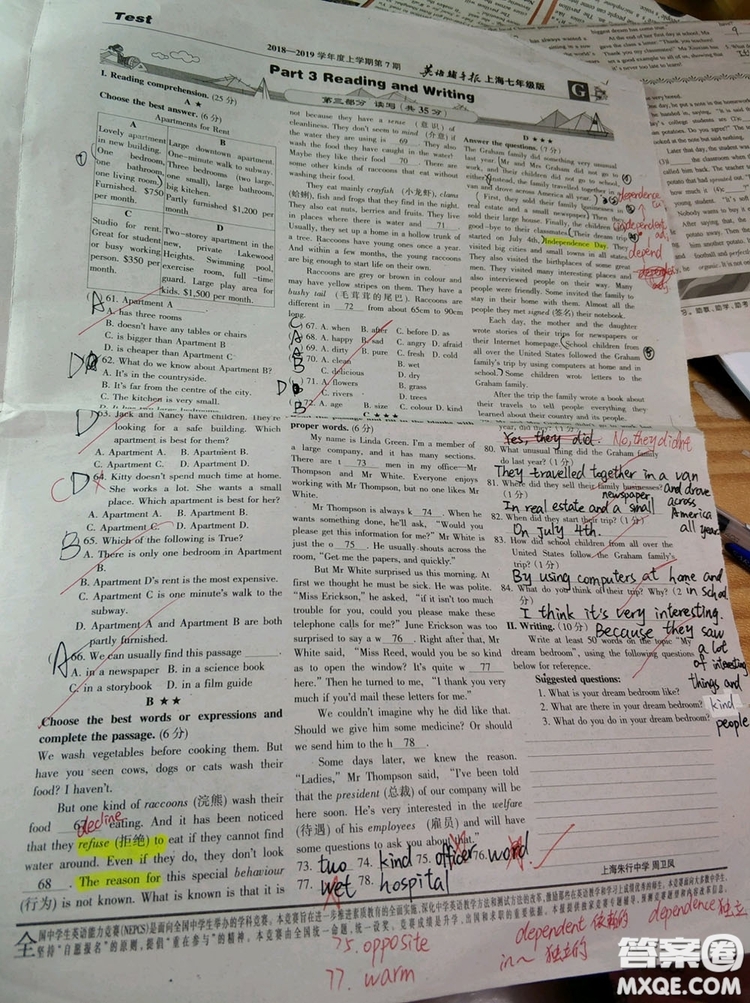 Test
2018—2019 学年度上学期第 7 期
英语辅导报 上海七年级版
Part 3 Reading and Writing
第三部分 读写 (共 35 分)
G
I. Reading comprehension. (25 分)
A ★
Choose the best answer. (6 分)
Apartments for Rent
A
Lovely apartment
in new building.
One bedroom,
one bathroom,
one living room.
Furnished. $750
per month.
B
Large downtown apartment.
One-minute walk to subway.
Three bedrooms (two large,
one small), large bathroom,
big kitchen.
Partly furnished $1,200 per
month
C
Studio for rent.
Great for student
or busy working
person. $350 per
month.
D
Two-storey apartment in the
new, private, Lakewood
Heights. Swimming pool,
exercise room, full-time
guard. Large play area for
kids. $1,500 per month.
A
61. Apartment A
A. has three rooms
B. doesn't have any tables or chairs
C. is bigger than Apartment B
D. is cheaper than Apartment C
D
62. What do we know about Apartment B?
A. It's in the countryside.
B. It's far from the centre of the city.
C. The kitchen is very small.
D
63. Jack and Nancy have children. They're
looking for a safe building. Which
apartment is best for them?
A. Apartment A. B. Apartment B.
C. Apartment C. D. Apartment D.
C D
64. Kitty doesn't spend much time at home.
She works a lot. She wants a small
place. Which apartment is best for her?
A. Apartment A. B. Apartment B.
C. Apartment C. D. Apartment D.
B
65. Which of the following is True?
A. There is only one bedroom in Apartment
B.
B. Apartment D's rent is the most expensive.
C. Apartment C is one minute's walk to the
subway.
D. Apartment A and Apartment B are both
partly furnished.
A
66. We can usually find this passage ____.
A. in a newspaper B. in a science book
C. in a storybook D. in a film guide
B ★★
Choose the best words or expressions and
complete the passage. (6 分)
We wash vegetables before cooking them. But
have you seen cows, dogs or cats wash their
food? I haven't.
But one kind of raccoons (浣熊) wash their
food 67 eating. And it has been noticed
decline
that they refuse (拒绝) to eat if they cannot find
water around. Even if they do, they don't look
68 . The reason for this special behaviour
(行为) is not known. What is known is that it is
not because they have a sense (意识) of
cleanliness. They don't seem to mind (介意) if
the water they are using is 69 . They also
wash the food they have caught in the water!
Maybe they like their food 70 . There are
some other kinds of raccoons that eat without
washing their food.
They eat mainly crayfish (小龙虾), clams
(蛤蜊), fish and frogs that they find in the night.
They also eat nuts, berries and fruits. They live
in places where there is water and 71 .
Usually, they set up a home in a hollow trunk of
a tree. Raccoons have young ones once a year.
And within a few months, the young raccoons
are big enough to start life on their own.
Raccoons are grey or brown in colour and
may have yellow stripes on them. They have a
bushy tail (毛茸茸的尾巴). Raccoons are
different in 72 from about 65cm to 90cm
long.
C 67. A. when B. after C. before D. as
A 68. A. happy B. sad C. angry D. afraid
A 69. A. dirty B. pure C. fresh D. cold
B 70. A. clean B. wet
C. delicious D. dry
D 71. A. flowers B. grass
C. rivers D. trees
B 72. A. age B. size C. colour D. kind
C ★★★
proper words. (6 分)
My name is Linda Green. I'm a member of
a large company, and it has many sections.
There are t 73 men in my office—Mr
Thompson and Mr White. Everyone enjoys
working with Mr Thompson, but no one likes Mr
White.
Mr Thompson is always k 74 . When he
wants something done, he'll ask, "Would you
please get this information for me?" Mr White is
just the o 75 . He usually shouts across the
room, "Get me the papers, and quickly."
But Mr White surprised us this morning. At
first we thought he must be sick. He was polite.
"Miss Erickson," he asked, "if it isn't too much
trouble for you, could you please make these
telephone calls for me?" June Erickson was too
surprised to say a w 76 . Right after that, Mr
White said, "Miss Reed, would you be so kind
as to open the window? It's quite w 77
here." Then he turned to me, "I thank you very
much if you'd mail these letters for me."
We couldn't imagine why he did like that.
Should we give him some medicine? Or should
we send him to the h 78 .
Some days later, we knew the reason.
"Ladies," Mr Thompson said, "I've been told
that the president (总裁) of our company will be
here soon. He's very interested in the welfare
(待遇) of his employees (雇员) and will have
some questions to ask you about that."
73. two 74. kind 75. officer 76. word
77. wet 78. hospital
75. opposite
77. warm
D ★★★
Answer the questions. (7 分)
The Graham family did something very unusual
last year. Mr and Mrs Graham did not go to
work, and their children did not go to school,
either. Instead, the family travelled together in a
van and drove across America all year.
First, they sold their family businesses in
real estate and a small newspaper. Then they
sold their large house. Finally, the children said
good-bye to their classmates. Their dream trip
started on July 4th, Independence Day.
visited big cities and small towns in all states.
They also visited the birthplaces of some great
men. They visited many interesting places and
also interviewed people on their way. Many
people were friendly. Some invited the family to
stay in their home with them. Almost all the
people they met signed (签名) their notebook.
Each day, the mother and the daughter
wrote stories of their trips for newspapers or
their Internet homepage. School children from
all over the United States followed the Graham
family's trip by using computers at home and in
school. Some children wrote letters to the
Graham family.
After the trip the family wrote a book
about their travels to tell people everything they
learned about their country and its people.
year, did they? (1 分)
Yes, they did. No, they didn't
80. What unusual thing did the Graham family
do last year? (1 分)
They travelled together in a van
and drove across America all year
81. Where did they sell their family businesses?
(1 分)
In real estate and a small newspaper
82. When did they start their trip? (1 分)
On July 4th.
83. How did school children from all over the
United States follow the Graham family's
trip? (1 分)
By using computers at home and in school
84. What do you think of their trip? Why? (2 分)
I think it's very interesting.
Because they saw a lot of interesting things and kind people
II. Writing. (10 分)
Write at least 50 words on the topic "My
dream bedroom", using the following questions
below for reference.
Suggested questions:
1. What is your dream bedroom like?
2. What are there in your dream bedroom?
3. What do you do in your dream bedroom?
上海朱行中学 周卫凤
dependence
independent
depend
dependent 依赖的
in~ 独立的
dependence 独立
全国中学生英语能力竞赛(NEPCS)是面向全国中学生举办的学科竞赛。
坚持"自愿报名"的原则，提倡"重在参与"的精神。
答案圈
MXQE.COM